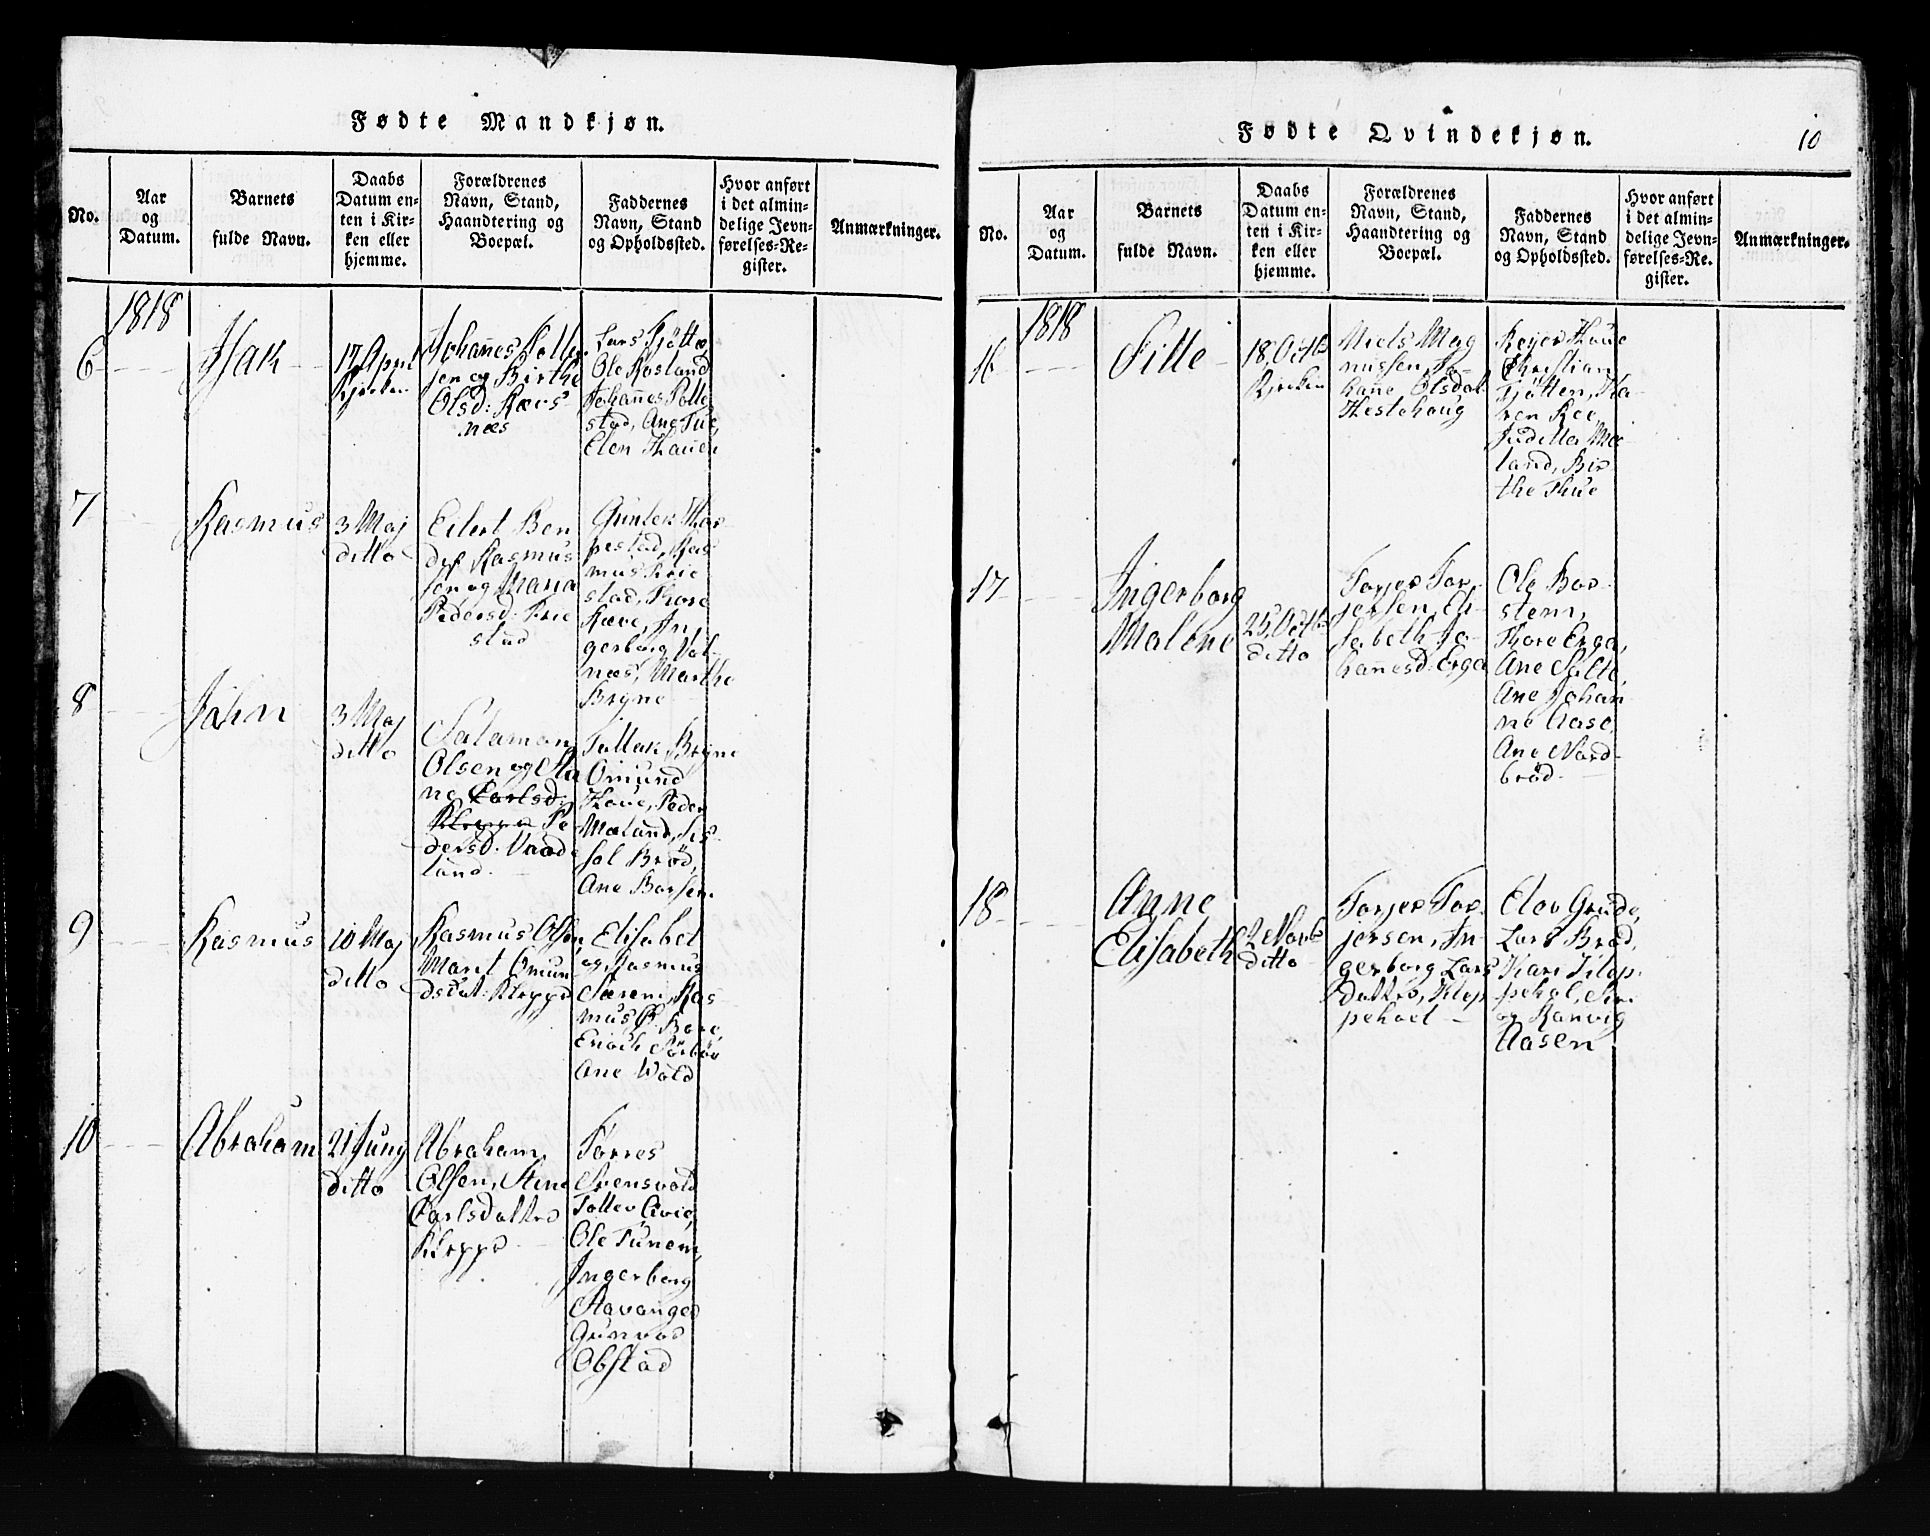 Fødte Mandkjøn.
No.
Aar
og
Datum.
Barnets
fulde Navn.
Daabs
Datum en-
ten i Kir-
ken eller
hjemme.
Forældrenes
Navn, Stand,
Haandtering og
Boepæl.
Faddernes
Navn, Stand
og Opholdssted.
Hvor anført
i det almin-
delige Jevn-
førelses-Re-
gister.
Anmærkninger.
1818
6
Isak
17 April
Kjerken
Johannes Tolle
sen og Birthe
Olsd: Rævs-
næs
Lars Tjøtta
Ole Rosland
Johannes Polle
stad, Ane Tue,
Elen Hauen
7
Rasmus
3 Maj
ditto
Eilert Ben
des Rasmus
sen og Maria
Pedersd: Frie
stad
Gunlek Thor
pestad, Ras
mus Frie
stad, Thore
Ræve, In
gerborg Vol-
næs, Marthe
Bryne
8
John
3 Maj
ditto
Salamon
Olsen og Sta
ne Carlsd:
Kleppe Pe
dersd: Vaade
land.
Tollak Bryne
Omund
Haue, Peder
Mæland, Sis-
sel Brød,
Ane Borsem.
9
Rasmus
10 Maj
ditto
Rasmus Olsen
Marit Omun
dsdat: Kleppe
Elisabet
og Rasmus
Særem, Ras
mus Bore,
Enoch Sørbøe
Ane Wold
10
Abraham
21 Juny
ditto
Abraham
Olsen, Stine
Carlsdatter
Kleppe
Torres
Svensvold
Tollev Avie,
Ole Tunem,
Ingerborg
Stavanger
Gunvor
Obstad
Fødte Qvindekjøn.
10
No.
Aar
og
Datum.
Barnets
fulde Navn.
Daabs
Datum en-
ten i Kir-
ken eller
hjemme.
Forældrenes
Navn, Stand,
Haandtering og
Boepæl.
Faddernes
Navn, Stand
og Opholdssted.
Hvor anført
i det almin-
delige Jevn-
førelses-Re-
gister.
Anmærkninger.
1818
16
Sille
18. Octb
Kjerken
Niels Mag
nussen, Jo-
hanne Olsdat
Hestehoug
Reyer Houe
Christian
Tjøtten, Ka-
ren Ree,
Juditta Mæ
land, Bir-
the Thue
17
Ingerborg
Malene
25. Octb
ditto
Torjer Tor-
jersen, Eli-
sabeth Jo-
hannesd: Erga
Ole Bor-
stem,
Thore Erga,
Ane Salte,
Ane Johan
ne Aase,
Ane Nord-
brød
18
Anne
Elisabeth
2 Novb
ditto
Torjer Tor
jersen, In-
gerborg Lars
datter, Klep
pehoel
Elov Grude,
Lars Brød,
Kari Klep-
pehol, Siri
og Ranvig
Aasen